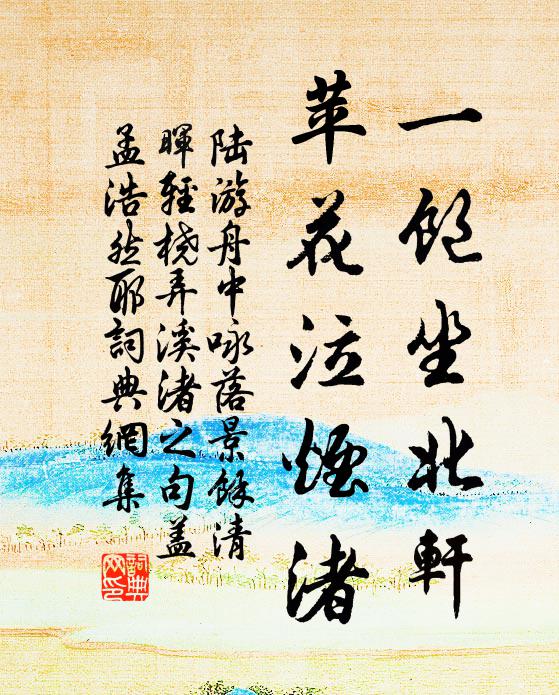 一飽坐北軒
苹花泣煙渚
陆游舟中咏落景餘清
暉輕橈弄溪渚之句盖
孟浩然耶詞典網集
詞典
网印